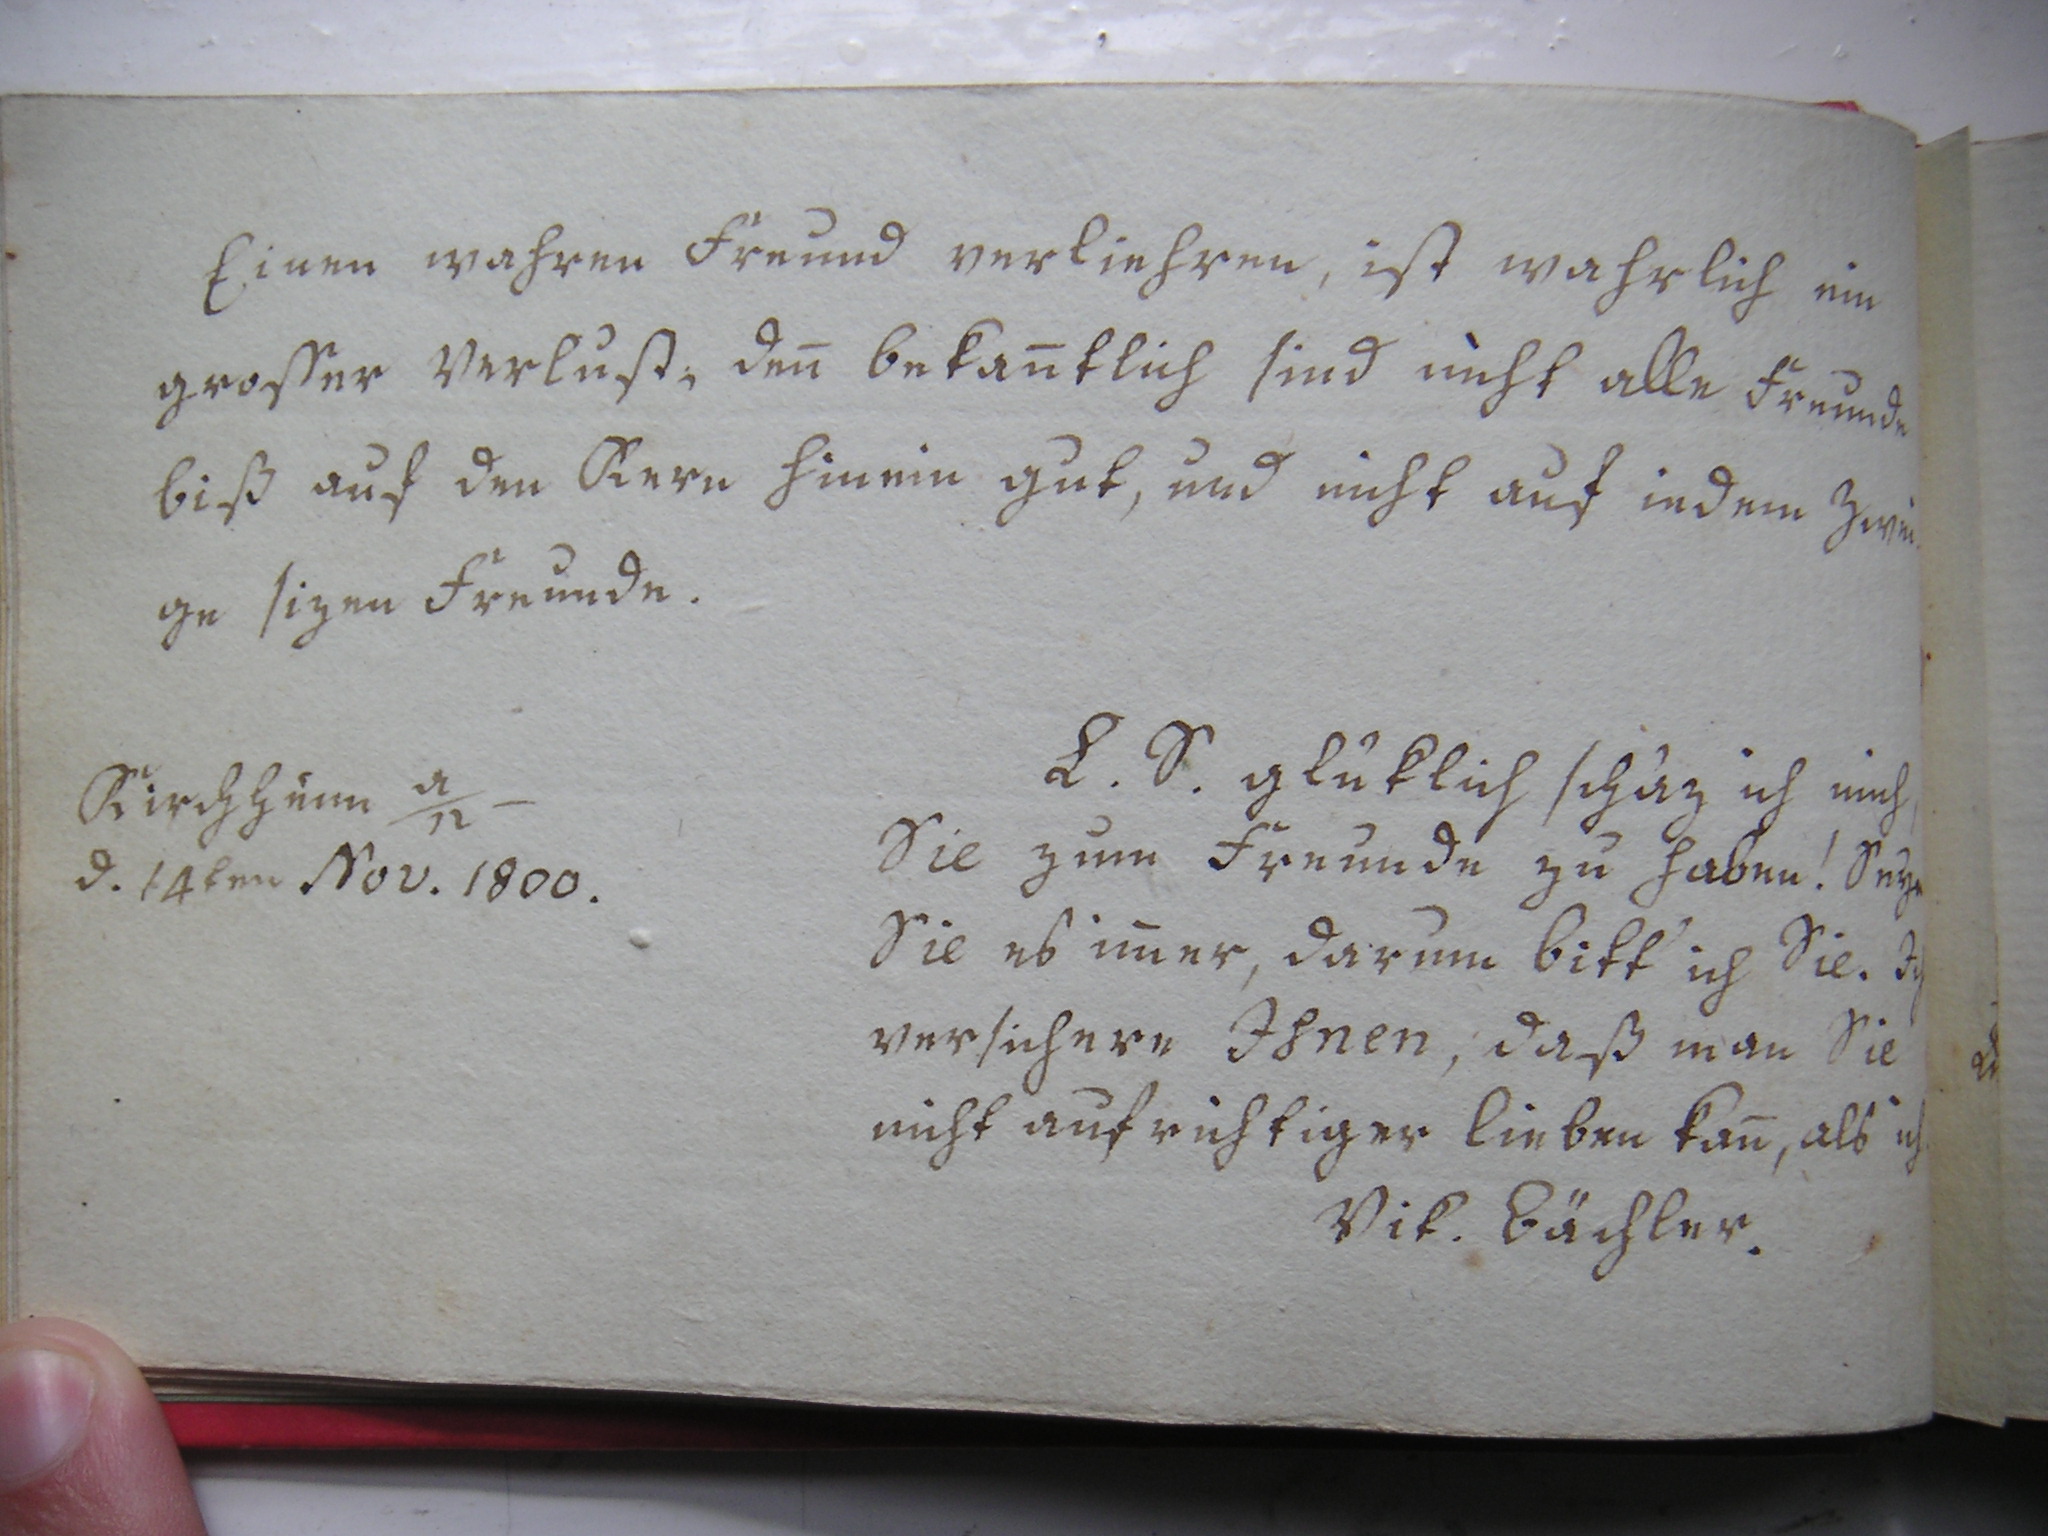 Einen wahren Freund verliehren, ist wahrlich ein
grosser Verlust; den̅ bekan̅tlich sind nicht alle Freunde
biß auf den Kern hinein gut, und nicht auf iedem Zwei-
ge sizen Freunde.
L. S. glüklich schäz ich mich,
Sie zum Freunde zu haben! Seyn
Sie es im̅er, darum bitt' ich Sie. Ich
versichere Ihnen, daß man Sie
nicht aufrichtiger lieben kan̅, als ich
Vik. Bächler.
Kirchheim a/n
d. 14ten Nov. 1800.